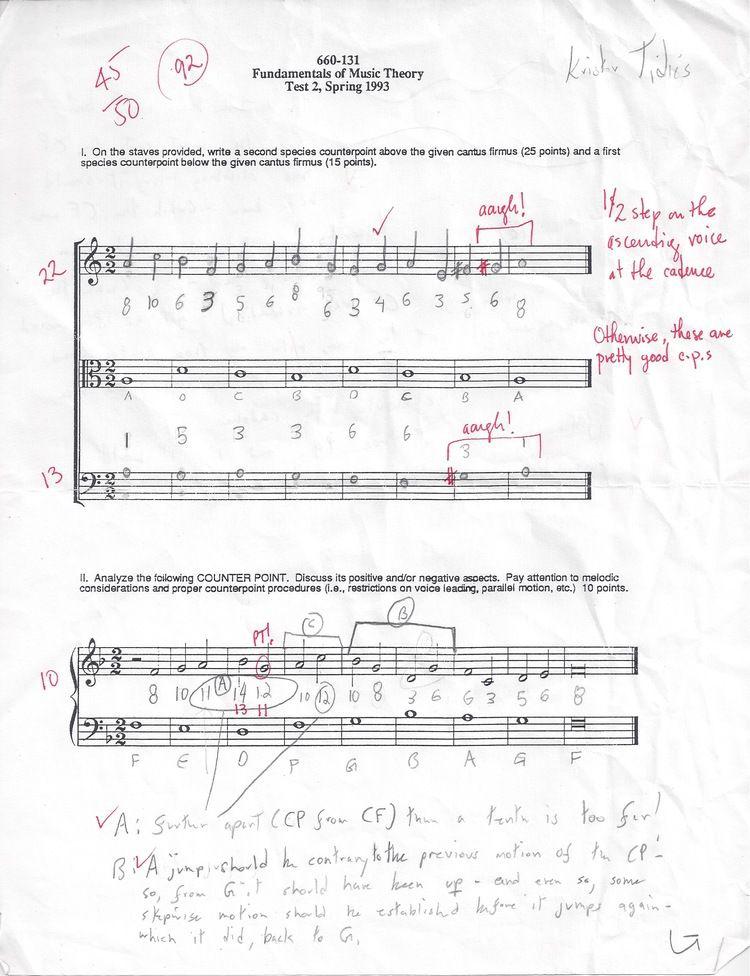 660-131
Fundamentals of Music Theory
Test 2, Spring 1993
45/50
92
I. On the staves provided, write a second species counterpoint above the given cantus firmus (25 points) and a first
species counterpoint below the given cantus firmus (15 points).
aaugh!
1/2 step on the
ascending voice
at the cadence
22
8 10 6 3 5 6 8 6 3 4 6 3 5 6 8
Otherwise, these are
pretty good c.p.s
A D C B D C B A
1 5 3 3 6 6 3 1
aaugh!
13
II. Analyze the following COUNTER POINT. Discuss its positive and/or negative aspects. Pay attention to melodic
considerations and proper counterpoint procedures (i.e., restrictions on voice leading, parallel motion, etc.) 10 points.
PT!
C
B
10
8 10 11 A 14 12 10 12 10 8 3 6 6 3 5 6 8
13 11
F E D F G B A G F
A: further apart (CP from CF) than a tenth is too far!
B: A jump should be contrary to the previous motion of the CP -
so, from G it should have been up - and even so, some
stepwise motion should be established before it jumps again -
which it did, back to G.